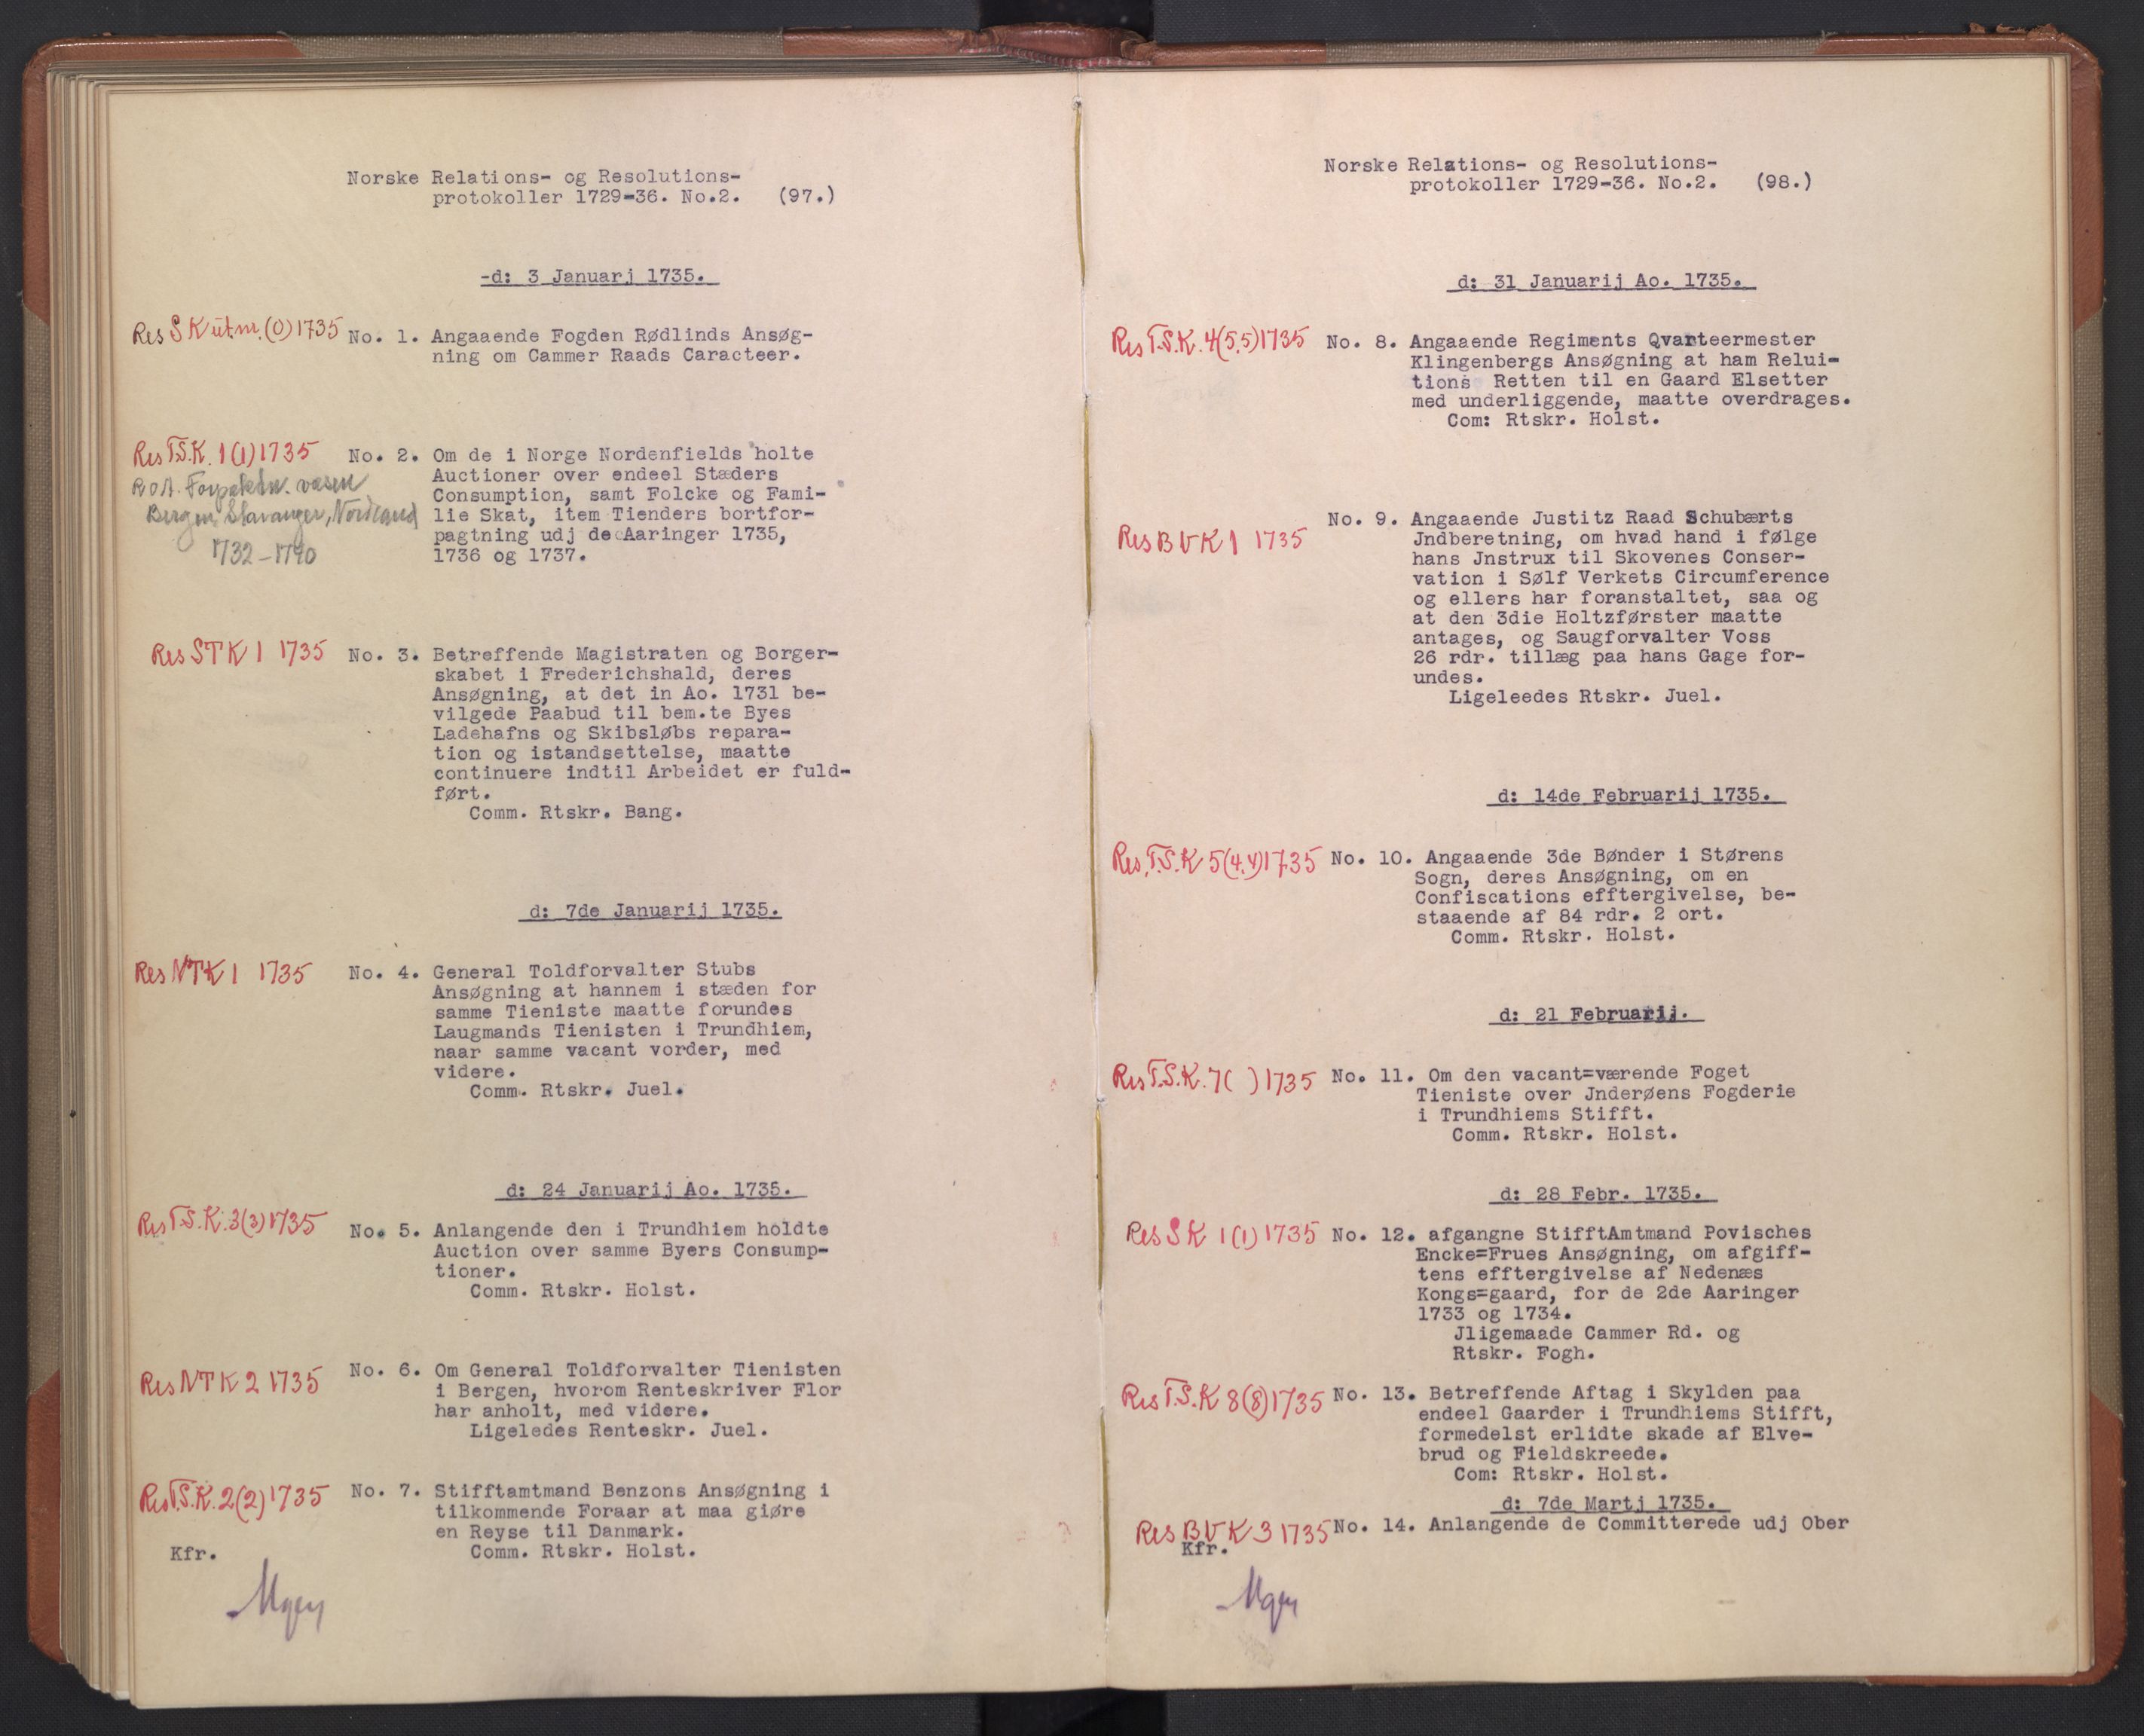 Norske Relations- og Resolutions-
protokoller 1729-36. No.2. (97.)
-d: 3 Januarj 1735.
Res SK utnr. (0) 1735 No. 1. Angaaende Fogden Rødlinds Ansøg-
ning om Cammer Raads Caracteer.
Res T.S.K. 1 (1) 1735 No. 2. Om de i Norge Nordenfields holte
Auctioner over endeel Stæders
Consumption, samt Folcke og Fami-
lie Skat, item Tienders bortfor-
pagtning udj de Aaringer 1735,
1736 og 1737.
R o A. Forpaktn. vesen
Bergen, Stavanger, Nordland
1732-1740
Res STK 1 1735 No. 3. Betreffende Magistraten og Borger-
skabet i Frederichshald, deres
Ansøgning, at det in Ao. 1731 be-
vilgede Paabud til bem.te Byes
Ladehafns og Skibsløbs repara-
tion og istandsettelse, maatte
continuere indtil Arbeidet er fuld-
ført.
Comm. Rtskr. Bang.
d: 7de Januarij 1735.
Res NTK 1 1735 No. 4. General Toldforvalter Stubs
Ansøgning at hannem i stæden for
samme Tieniste maatte forundes
Laugmands Tienisten i Trundhiem,
naar samme vacant vorder, med
videre.
Comm. Rtskr. Juel.
d: 24 Januarij Ao. 1735.
Res T.S.K. 3(3) 1735 No. 5. Anlangende den i Trundhiem holdte
Auction over samme Byers Consump-
tioner.
Comm. Rtskr. Holst.
Res NTK 2 1735 No. 6. Om General Toldforvalter Tienisten
i Bergen, hvorom Renteskriver Flor
har anholt, med videre.
Ligeledes Renteskr. Juel.
Res T.S.K. 2(2) 1735 No. 7. Stifftamtmand Benzons Ansøgning i
tilkommende Foraar at maa giøre
en Reyse til Danmark.
Comm. Rtskr. Holst.
Kfr.
Norske Relations- og Resolutions-
protokoller 1729-36. No.2. (98.)
d: 31 Januarij Ao. 1735.
Res T.S.K. 4(5,5) 1735 No. 8. Angaaende Regiments Qvarteermester
Klingenbergs Ansøgning at ham Relui-
tions Retten til en Gaard Elsetter
med underliggende, maatte overdrages.
Com: Rtskr. Holst.
Res BVK 1 1735 No. 9. Angaaende Justitz Raad Schubærts
Jndberetning, om hvad hand i følge
hans Jnstrux til Skovenes Conser-
vation i Sølf Verkets Circumference
og ellers har foranstaltet, saa og
at den 3die Holtzførster maatte
antages, og Saugforvalter Voss
26 rdr. tillæg paa hans Gage for-
undes.
Ligeleedes Rtskr. Juel.
d: 14de Februarij 1735.
Res. T.S.K 5(4,4) 1735 No. 10. Angaaende 3de Bønder i Størens
Sogn, deres Ansøgning, om en
Confiscations efftergivelse, be-
staaende af 84 rdr. 2 ort.
Comm. Rtskr. Holst.
d: 21 Februarij.
Res T.S.K. 7( ) 1735 No. 11. Om den vacant=værende Foget
Tieniste over Jnderøens Fogderie
i Trundhiems Stifft.
Comm. Rtskr. Holst.
d: 28 Febr. 1735.
Res SK 1(1) 1735 No. 12. afgangne StifftAmtmand Povisches
Encke=Frues Ansøgning, om afgiff-
tens efftergivelse af Nedenæs
Kongs=gaard, for de 2de Aaringer
1733 og 1734.
Jligemaade Cammer Rd. og
Rtskr. Fogh.
Res T.S.K 8(8) 1735 No. 13. Betreffende Aftag i Skylden paa
endeel Gaarder i Trundhiems Stifft,
formedelst erlidte skade af Elve-
brud og Fieldskreede.
Com: Rtskr. Holst.
d: 7de Martj 1735.
Res BVK 3 1735 No. 14. Anlangende de Committerede udj Ober
Kfr.